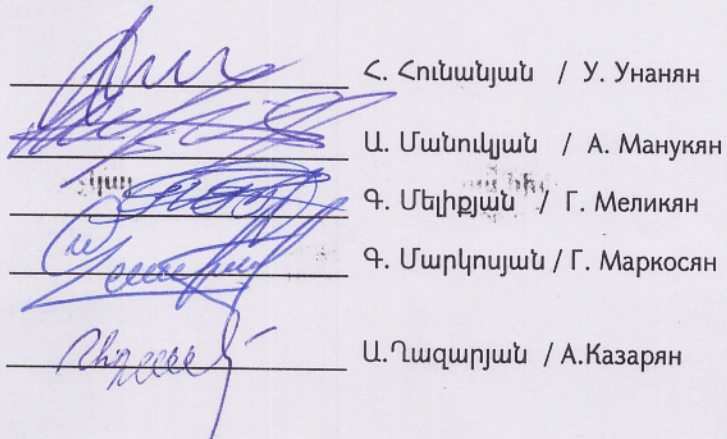 Հ. Հունանյան / У. Унанян
Ա. Մանուկյան / А. Манукян
Գ. Մելիքյան / Г. Меликян
Գ. Մարկոսյան / Г. Маркосян
Ա.Ղազարյան / А.Казарян